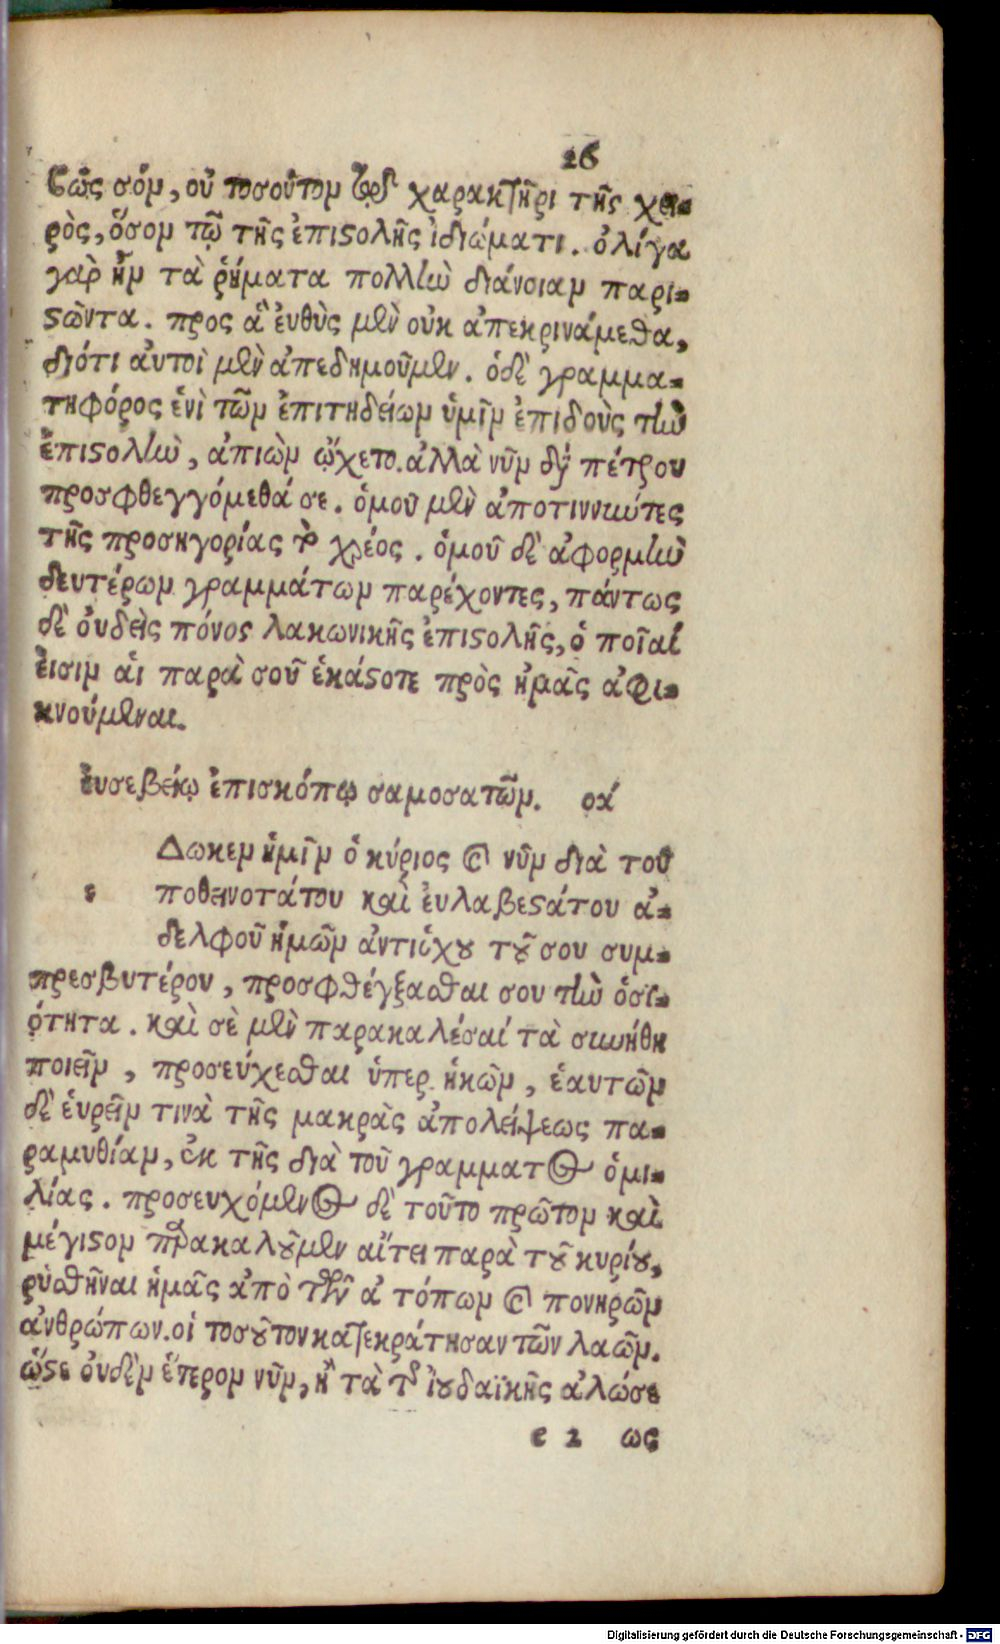 26
ϐῶς σόν, οὐ τοσοῦτον τῷ χαρακτῆρι τῆς χει-
ρὸς, ὅσον τῷ τῆς ἐπιϛολῆς ἰδιώματι. ὀλίγα
γὰρ ἦν τὰ ῥήματα πολλὼ διάνοιαν παρι-
ϛῶντα. προς ἃ ἐυθὺς μὲν οὐκ ἀπεκρινάμεθα,
διότι ἀυτοὶ μὲν ἀπεδημοῦμεν. ὁδὲ γραμμα-
τηφόρος ἑνὶ τῶν ἐπιτηδείων ὑμῖν ἐπιδοὺς τὴν
ἐπιϛολὴν, ἀπιὼν ᾤχετο. ἀλλὰ νῦν διὰ πέτρου
προσφθεγγόμεθά σε. ὁμοῦ μὲν ἀποτιννύντες
τῆς προσηγορίας τὸ χρέος. ὁμοῦ δὲ ἀφορμὴν
δευτέρων γραμμάτων παρέχοντες, πάντως
δὲ ὀυδεὶς πόνος λακωνικῆς ἐπιϛολῆς, ὁ ποῖαί
ἐισιν ἁι παρὰ σοῦ ἑκάϛοτε πρὸς ἡμᾶς ἀφι-
κνούμεναι.
ἐυσεβείῳ ἐπισκόπῳ σαμοσατῶν. οά
Δωκεν ἡμῖν ὁ κύριος καὶ νῦν διὰ τοῦ
ε ποθεινοτάτου καὶ ἐυλαβεϛάτου ἀ-
δελφοῦ ἡμῶν ἀντιόχου τοῦ σου συμ-
πρεσβυτέρου, προσφθέγξασθαι σου τὴν ὁσι-
ότητα. καὶ σὲ μὲν παρακαλέσαί τὰ συνήθη
ποιεῖν, προσεύχεσθαι ὑπερ ἡκῶν, ἑαυτῶν
δὲ ἑυρεῖν τινὰ τῆς μακρὰς ἀπολείψεως πα-
ραμυθίαν, ἐκ τῆς διὰ τοῦ γραμματος ὁμι-
λίας. προσευχόμενος δὲ τοῦτο πρῶτον καὶ
μέγιϛον παρακαλοῦμεν αἴτει παρὰ τοῦ κυρίου,
ρὺσθῆναι ἡμᾶς ἀπὸ τῶν ἀ τόπων καὶ πονηρῶν
ἀνθρώπων. οἱ τοσοῦτον κατεκράτησαν τῶν λαῶν.
ὥϛε ὀυδὲν ἕτερον νῦν, ἢ τὰ τῆς ἰουδαϊκῆς ἁλώσε
e 2 ως
Digitalisierung gefördert durch die Deutsche Forschungsgemeinschaft - DFG